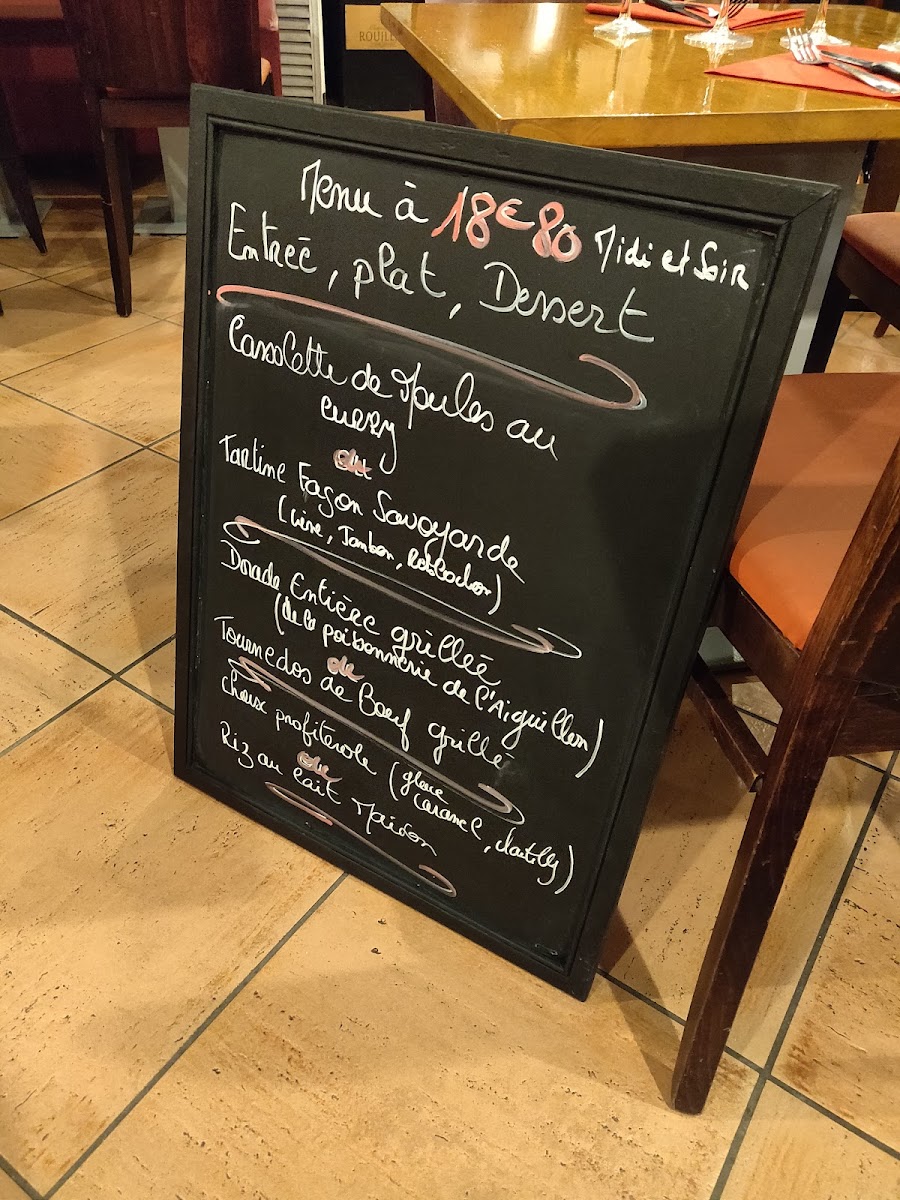 ROUILL
Menu à 18€80 Midi et Soir
Entrée, plat, Dessert
Cassolette de Moules au
curry
ou
Tartine Façon Savoyarde
(Crème, Jambon, Reblochon)
Dorade Entière grillée
(de la poissonnerie de l'Aiguillon)
ou
Tournedos de Bœuf grillé
choux profiterole (glace
caramel, chantilly)
ou
Riz au lait Maison